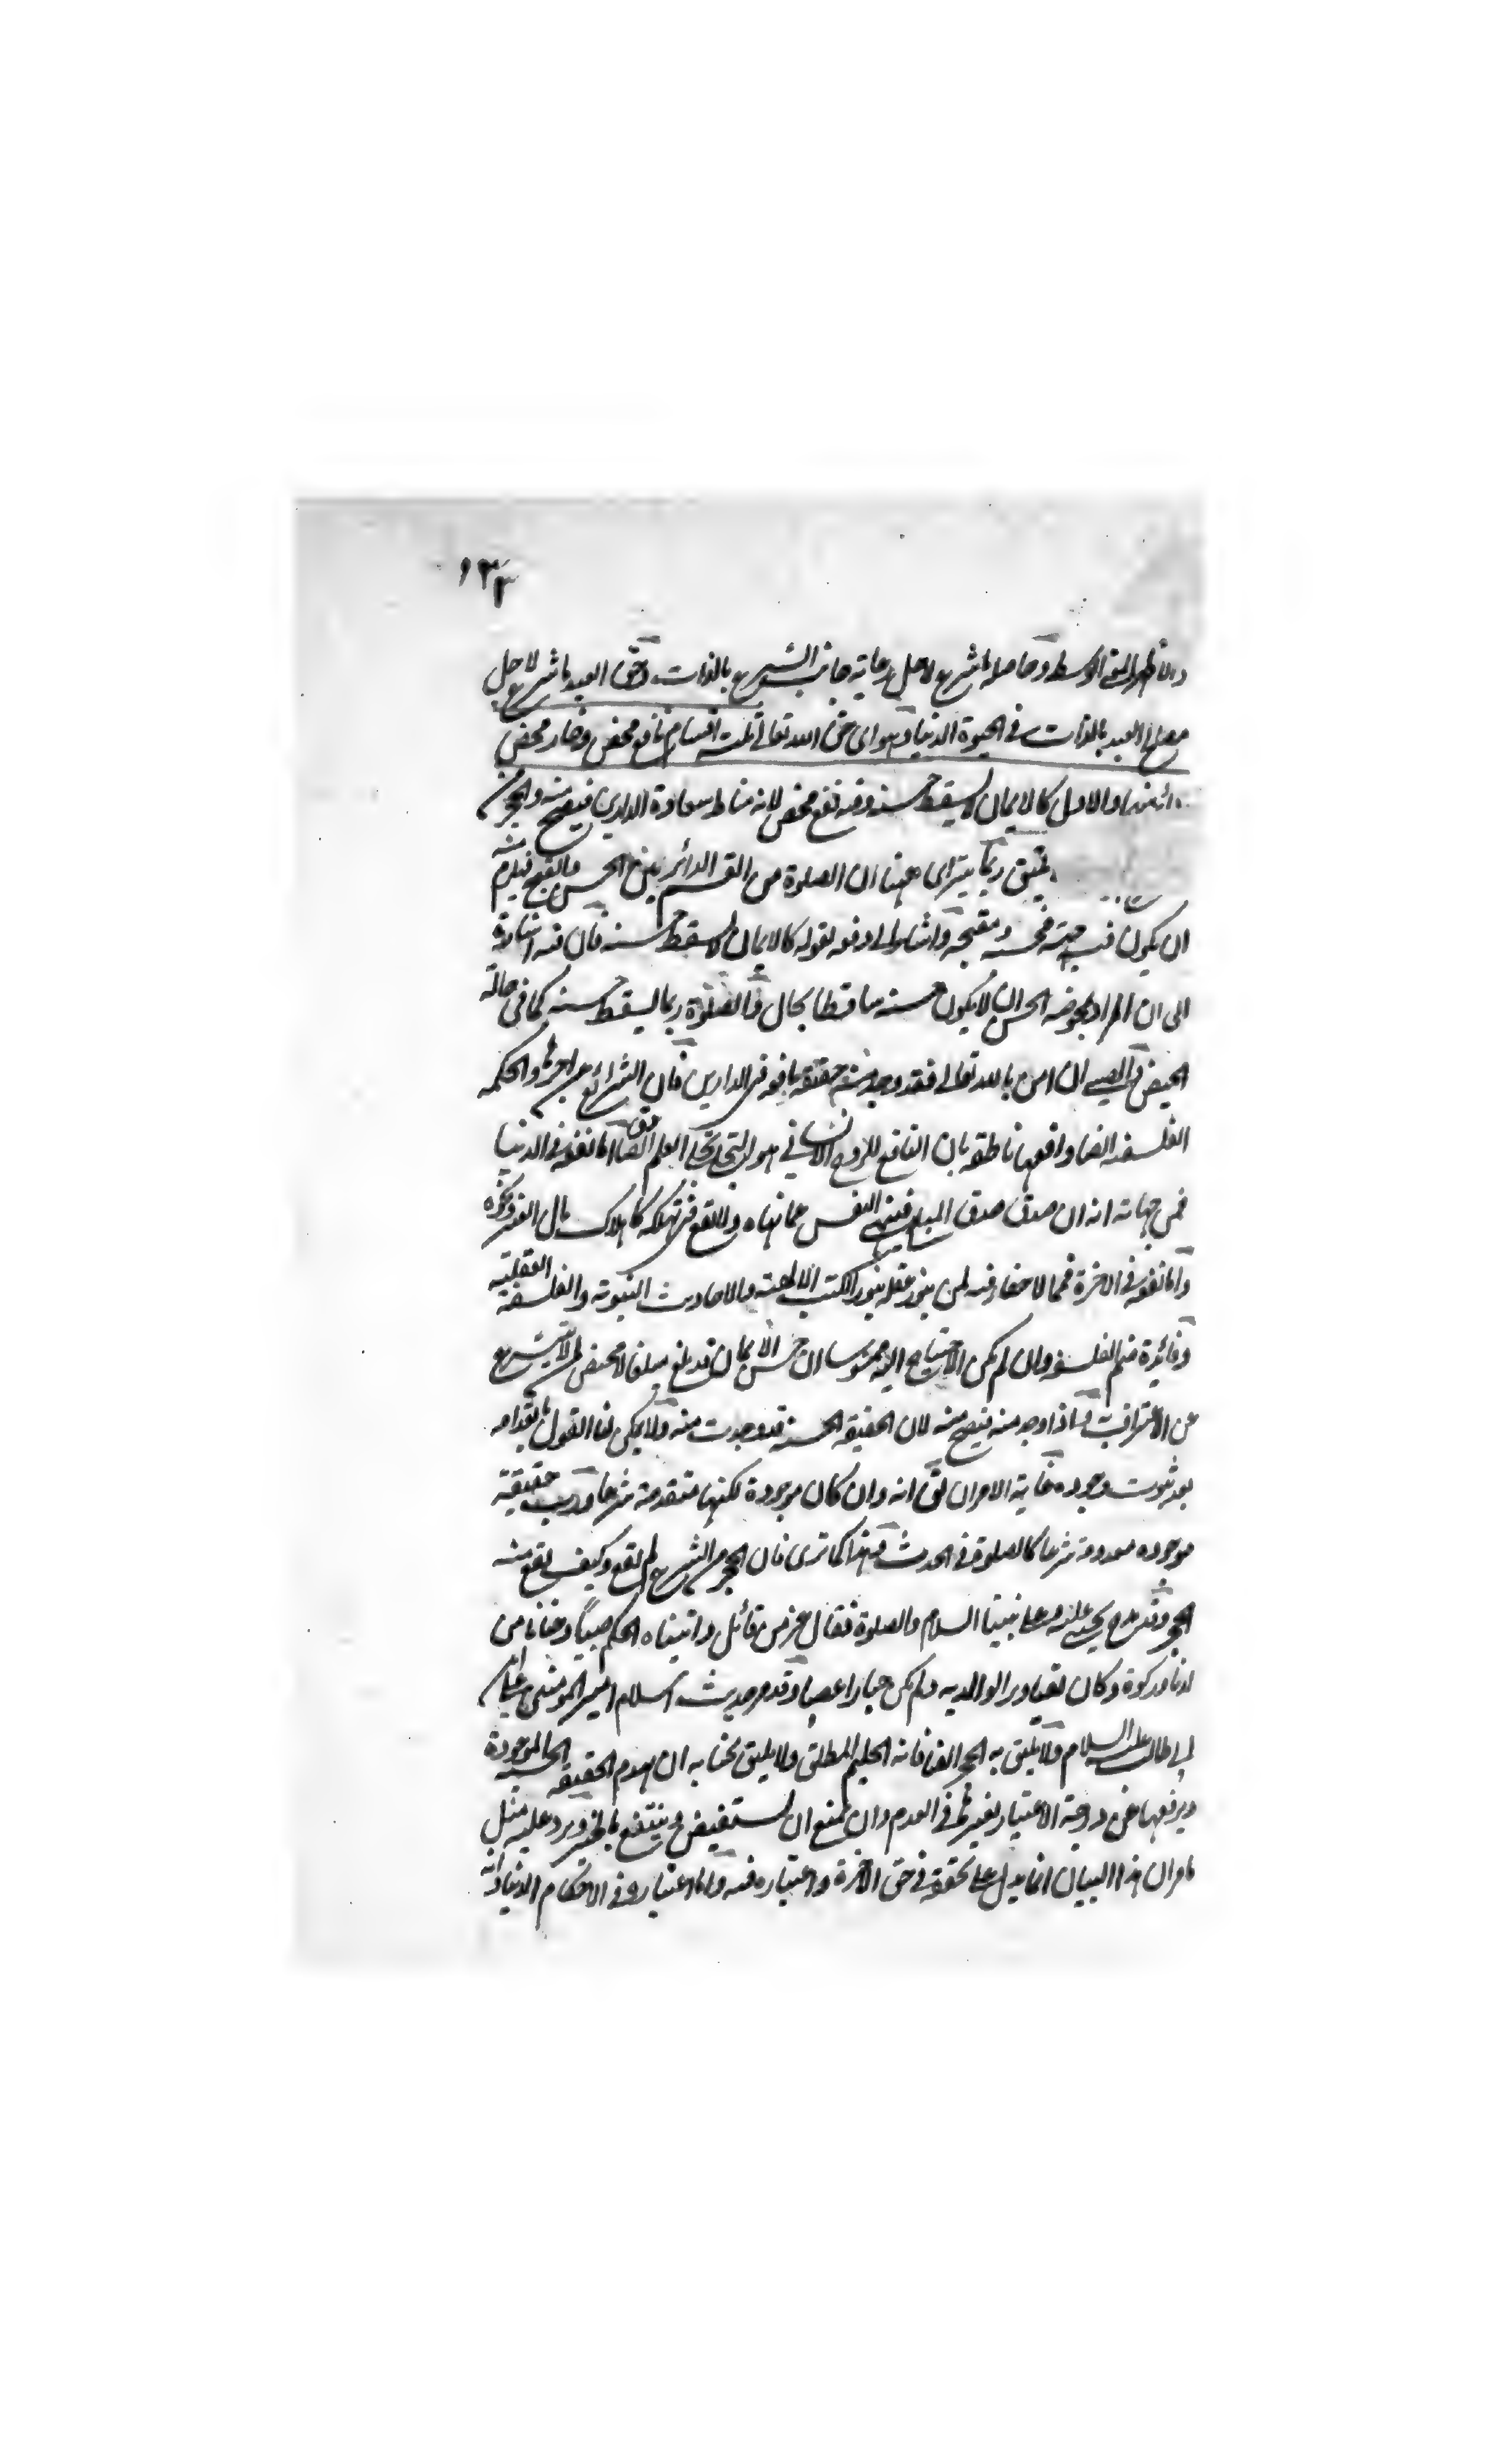 ١٣٣
وحاصله ما شرع لاجل رعاية جانب الشرع بالذات وحق العبد ما شرع لاجل
مصالح العبد بالذات في الحيوة الدنيا وهو اى حق الله تعالى ثلثة اقسام نافع محض وضار محض
والاول كالايمان لا يسقط حسنه وفيه نفع محض لانه مناط سعادة الدارين فيصح منه والحجر من
ربما يترااى ههنا ان الصلوة من القسم الدائر بين الحسن والقبح فيلزم
ان يكون فيه جهة محسنة ومقبحة واشار الى دفعه بقوله كالايمان لا يسقط حسنه فان فيه اشارة
الى ان المراد بمحوضة الحسن ان لا يكون حسنه ساقطا بحال والصلوة ربما يسقط حسنه كما في حالة
الحيض الصبى ان امن بالله تعالى فقد وجد منه حقيقة نافعة في الدارين فان الشرائع عن اخرها والحكمة
الفلسفية ايضا وافقها ناطقة بان النافع للروح الانسانى هو التحلى العلم اما نفعه في الدنيا
فمن جهاته انه ان صدق صدق النفس عما نهاه ولا تقع في تهلكة كاهلاك مال الغير ونحوه
واما نفعه في الاخرة فمما لا خفاء فيه لمن ينور عقله بنور الكتب الالهية والاحاديث النبوية والفلسفة العقلية
وفائدة ضم الفلسفة وان لم يكن الاحتياج اليه ان حسن الايمان قد بلغ مبلغا لا يختص
اذا وجد منه فيصح منه لان الحقيقة الحسنة قد وجدت منه ولا يمكن لنا القول بانعدامه
بعد ثبوت وجوده غاية الامر ان يق انه وان كان موجودة لكنها منعدمة شرعا ورب حقيقة
موجودة معدومة شرعا كالصلوة في الحدث وهذا كما ترى فان الحجر من الشرع لم يقع وكيف يقع منه
الحجر وقد مدح يحيى عليه وعلى نبينا السلام والصلوة فقال عز من قائل واتيناه الحكم صبيا وحنانا من
لدنا وزكوة وكان تقيا وبرا بوالديه ولم يكن جبارا عصيا وقد مر حديث اسلام امير المؤمنين على
ابن ابى طالب عليه السلام ولا يليق به الحجر ايضا فانه الحليم المطلق ولا يليق بجنابه ان يهدم الحقيقة الحسنة الموجودة
ويرفعها عن درجة الاعتبار في العدم وان يمنع ان يستفيض وينتفع بالخير ويرد عليه مثل
ما مر ان هذا البيان انما يدل على تحققه في حق الاخرة واعتباره فيه واما اعتباره في الاحكام الدنياوية